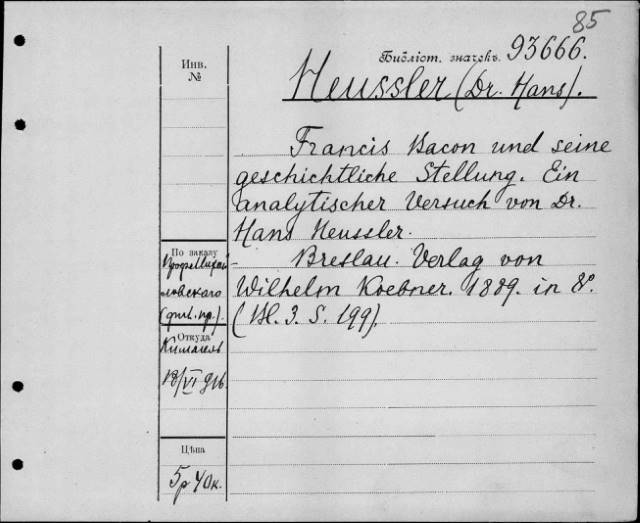 85
Библіот. значекъ. 93666.
Инв.
№
Heussler (Dr. Hans).
Francis Bacon und seine
geschichtliche Stellung. Ein
analytischer Versuch von Dr.
Hans Heussler.
Breslau. Verlag von
Wilhelm Koebner. 1889. in 8°.
(Bl. 3. S. 199).
По заказу
Проф. Михай-
ловскаго
Откуда
Киммель
18/VI 916.
Цѣна
5р 40к.